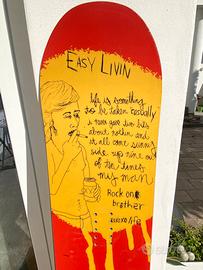 EASY LIVIN
life is something
to be taken casually
i never give two bits
about nothin and
it all come sunny
side up nine out
of ten times
my man
Rock on
brother